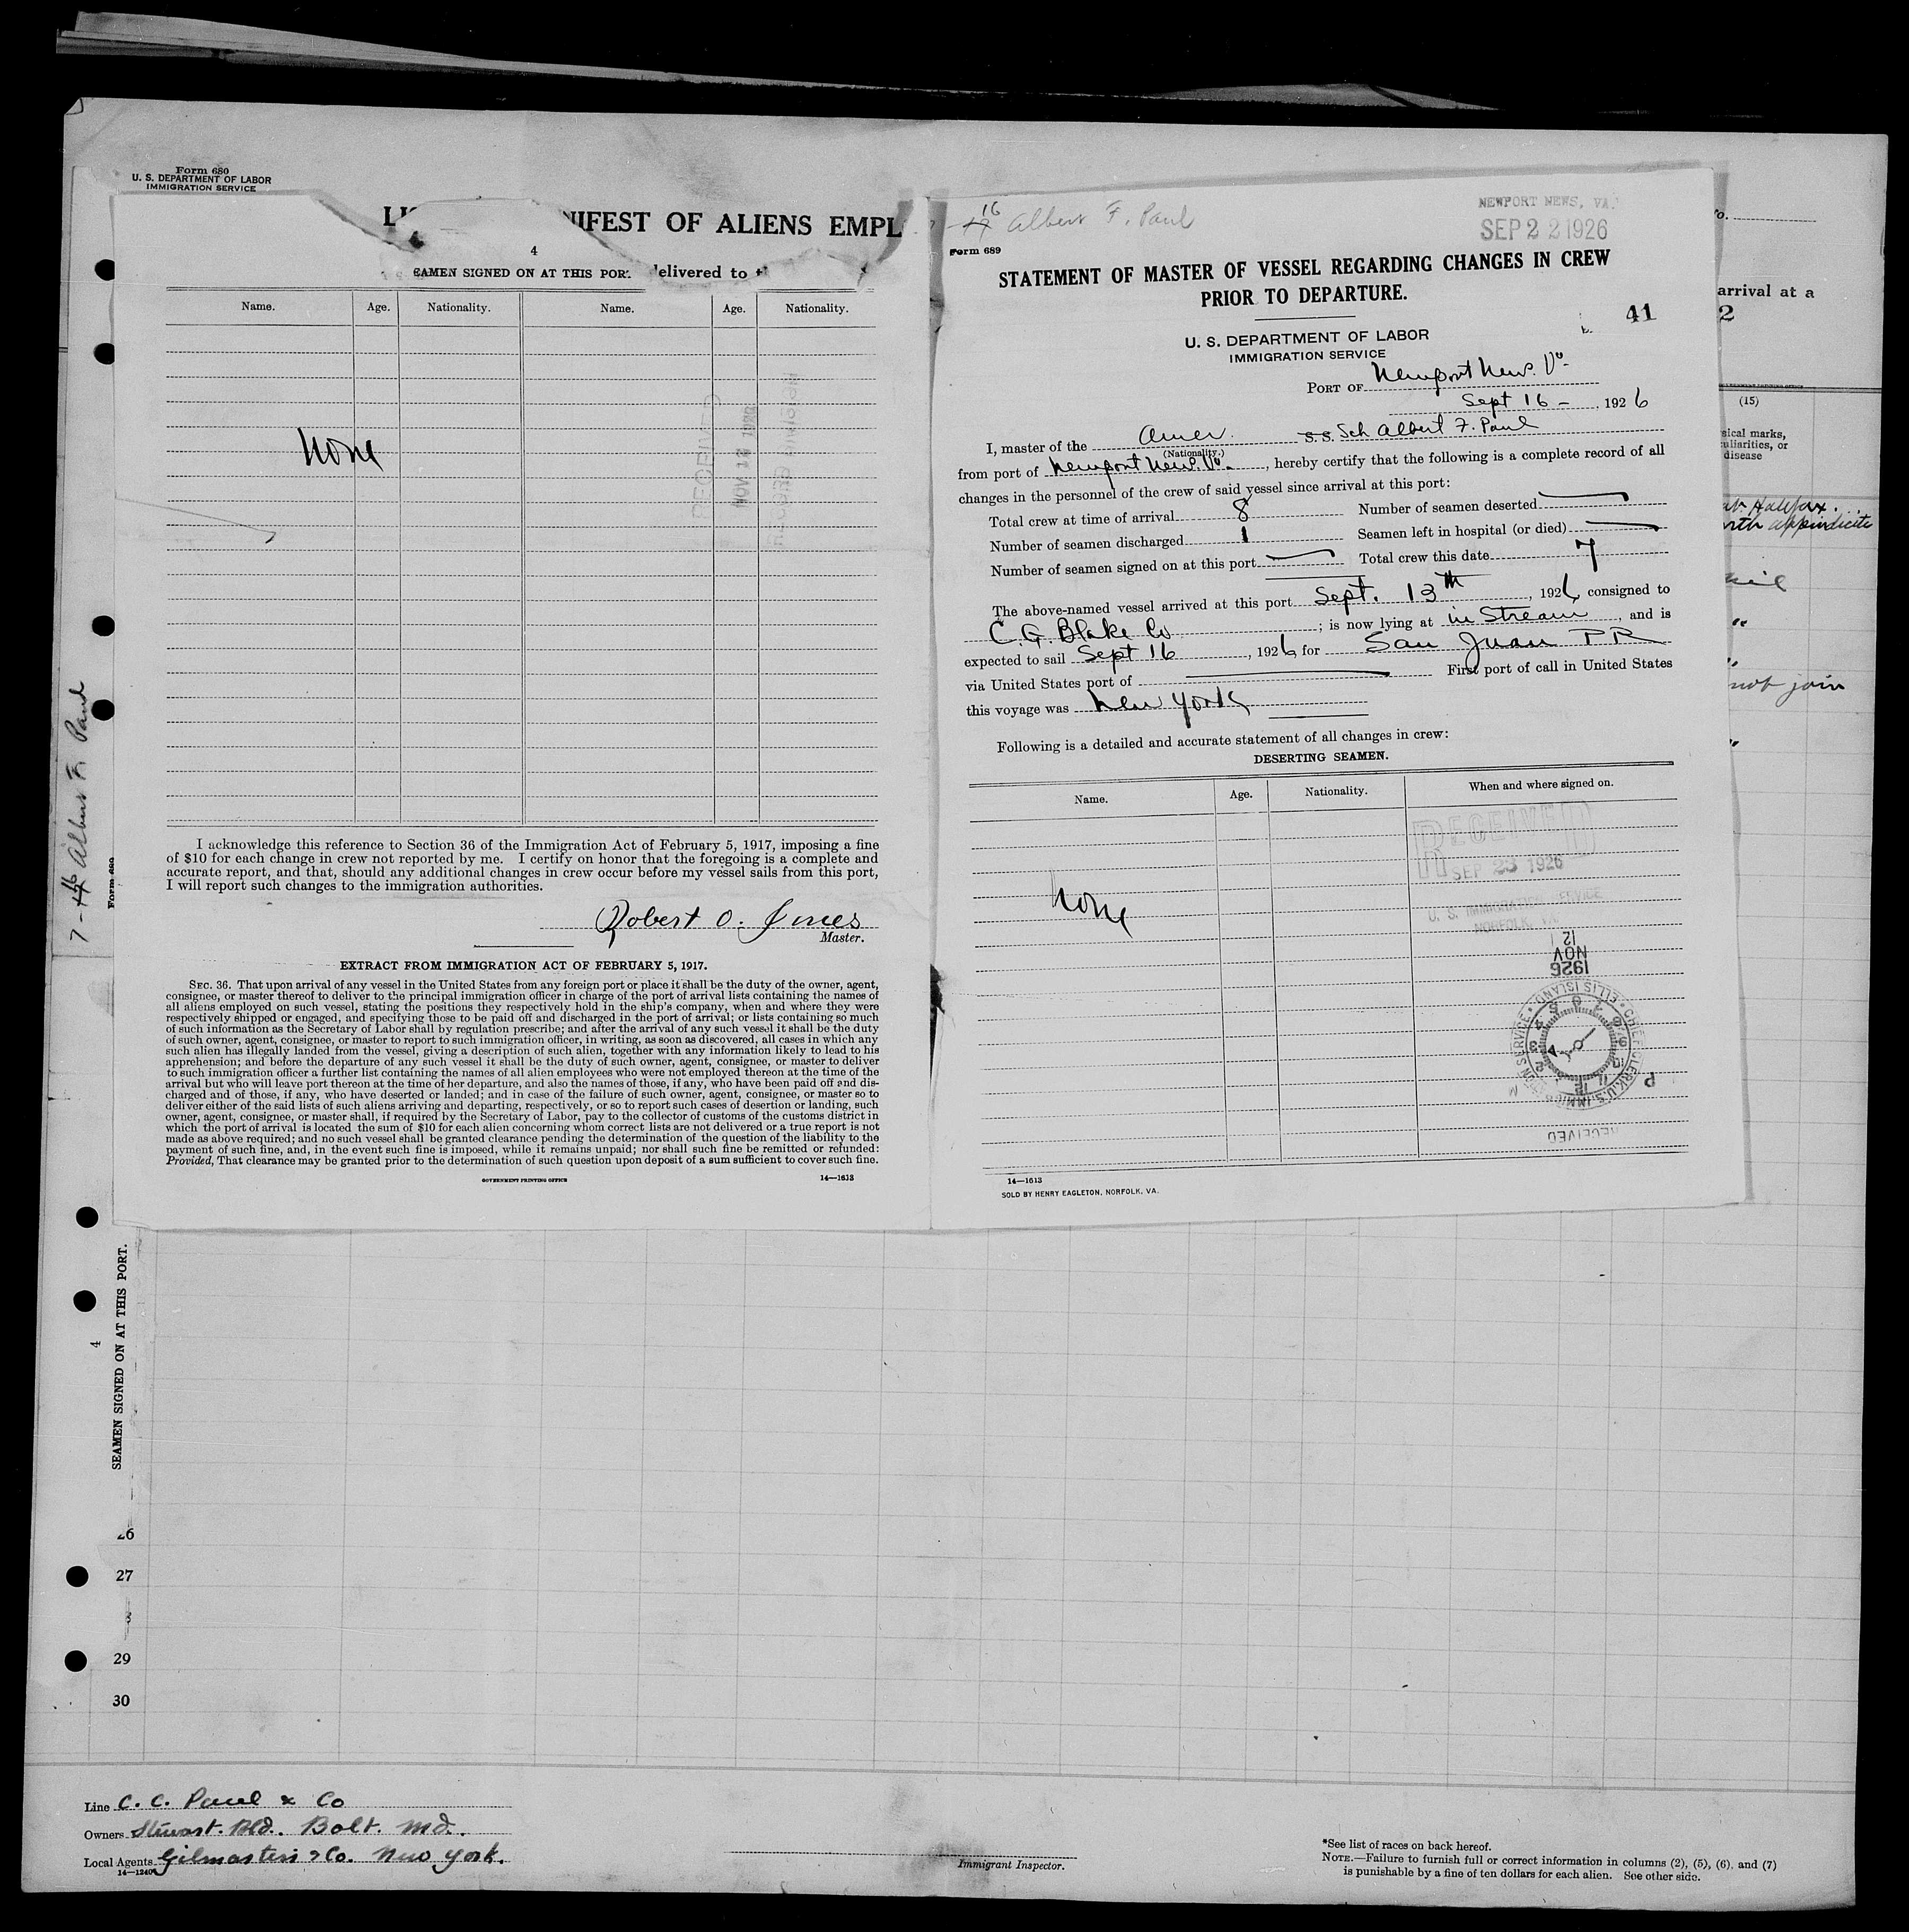 Form 680
U. S. DEPARTMENT OF LABOR
IMMIGRATION SERVICE
NIFEST OF ALIENS EMPL
4
EAMEN SIGNED ON AT THIS PORT. delivered to
Name. Age. Nationality. Name. Age. Nationality.
None
RECEIVED
NOV 12 1926
I acknowledge this reference to Section 36 of the Immigration Act of February 5, 1917, imposing a fine
of $10 for each change in crew not reported by me. I certify on honor that the foregoing is a complete and
accurate report, and that, should any additional changes in crew occur before my vessel sails from this port,
I will report such changes to the immigration authorities.
Robert O. Jones
Master.
EXTRACT FROM IMMIGRATION ACT OF FEBRUARY 5, 1917.
SEC. 36. That upon arrival of any vessel in the United States from any foreign port or place it shall be the duty of the owner, agent,
consignee, or master thereof to deliver to the principal immigration officer in charge of the port of arrival lists containing the names of
all aliens employed on such vessel, stating the positions they respectively hold in the ship's company, when and where they were
respectively shipped or engaged, and specifying those to be paid off and discharged in the port of arrival; or lists containing so much
of such information as the Secretary of Labor shall by regulation prescribe; and after the arrival of any such vessel it shall be the duty
of such owner, agent, consignee, or master to report to such immigration officer, in writing, as soon as discovered, all cases in which any
such alien has illegally landed from the vessel, giving a description of such alien, together with any information likely to lead to his
apprehension; and before the departure of any such vessel it shall be the duty of such owner, agent, consignee, or master to deliver
to such immigration officer a further list containing the names of all alien employees who were not employed thereon at the time of the
arrival but who will leave port thereon at the time of her departure, and also the names of those, if any, who have been paid off and dis-
charged and of those, if any, who have deserted or landed; and in case of the failure of such owner, agent, consignee, or master so to
deliver either of the said lists of such aliens arriving and departing, respectively, or so to report such cases of desertion or landing, such
owner, agent, consignee, or master shall, if required by the Secretary of Labor, pay to the collector of customs of the customs district in
which the port of arrival is located the sum of $10 for each alien concerning whom correct lists are not delivered or a true report is not
made as above required; and no such vessel shall be granted clearance pending the determination of the question of the liability to the
payment of such fine, and, in the event such fine is imposed, while it remains unpaid; nor shall such fine be remitted or refunded:
Provided, That clearance may be granted prior to the determination of such question upon deposit of a sum sufficient to cover such fine.
GOVERNMENT PRINTING OFFICE 14—1613
7-16 Albert F. Paul
Form 689
4
SEAMEN SIGNED ON AT THIS PORT.
16
17 Albert F. Paul
NEWPORT NEWS, VA.
SEP 22 1926
Form 689
STATEMENT OF MASTER OF VESSEL REGARDING CHANGES IN CREW
PRIOR TO DEPARTURE.
41
U. S. DEPARTMENT OF LABOR
IMMIGRATION SERVICE
PORT OF Newport News. Va.
Sept 16 - , 1926
I, master of the Amer. S.S. Sch Albert F. Paul
(Nationality.)
from port of Newport News. Va. , hereby certify that the following is a complete record of all
changes in the personnel of the crew of said vessel since arrival at this port:
Total crew at time of arrival 8 Number of seamen deserted
Number of seamen discharged 1 Seamen left in hospital (or died)
Number of seamen signed on at this port Total crew this date 7
The above-named vessel arrived at this port Sept. 13th , 1926, consigned to
C. G. Blake Co ; is now lying at in Stream , and is
expected to sail Sept 16 , 1926, for San Juan P R
via United States port of First port of call in United States
this voyage was New York
Following is a detailed and accurate statement of all changes in crew:
DESERTING SEAMEN.
Name. Age. Nationality. When and where signed on.
RECEIVED
SEP 23 1926
U. S. IMMIGRATION SERVICE
NORFOLK, VA.
None
12
NOV
1926
CHIEF CLERK, U.S. IMMIGRATION SERVICE • ELLIS ISLAND
P M
RECEIVED
14—1613
SOLD BY HENRY EAGLETON, NORFOLK, VA.
arrival at a
2
(15)
sical marks,
uliarities, or
disease
Halifax.
with appindicite
not join
26
27
29
30
Line C. C. Paul & Co
Owners Stewart. Bld. Balt. Md.
Local Agents Gilmartin & Co. New York.
14—1240
Immigrant Inspector.
*See list of races on back hereof.
NOTE.—Failure to furnish full or correct information in columns (2), (5), (6), and (7)
is punishable by a fine of ten dollars for each alien. See other side.